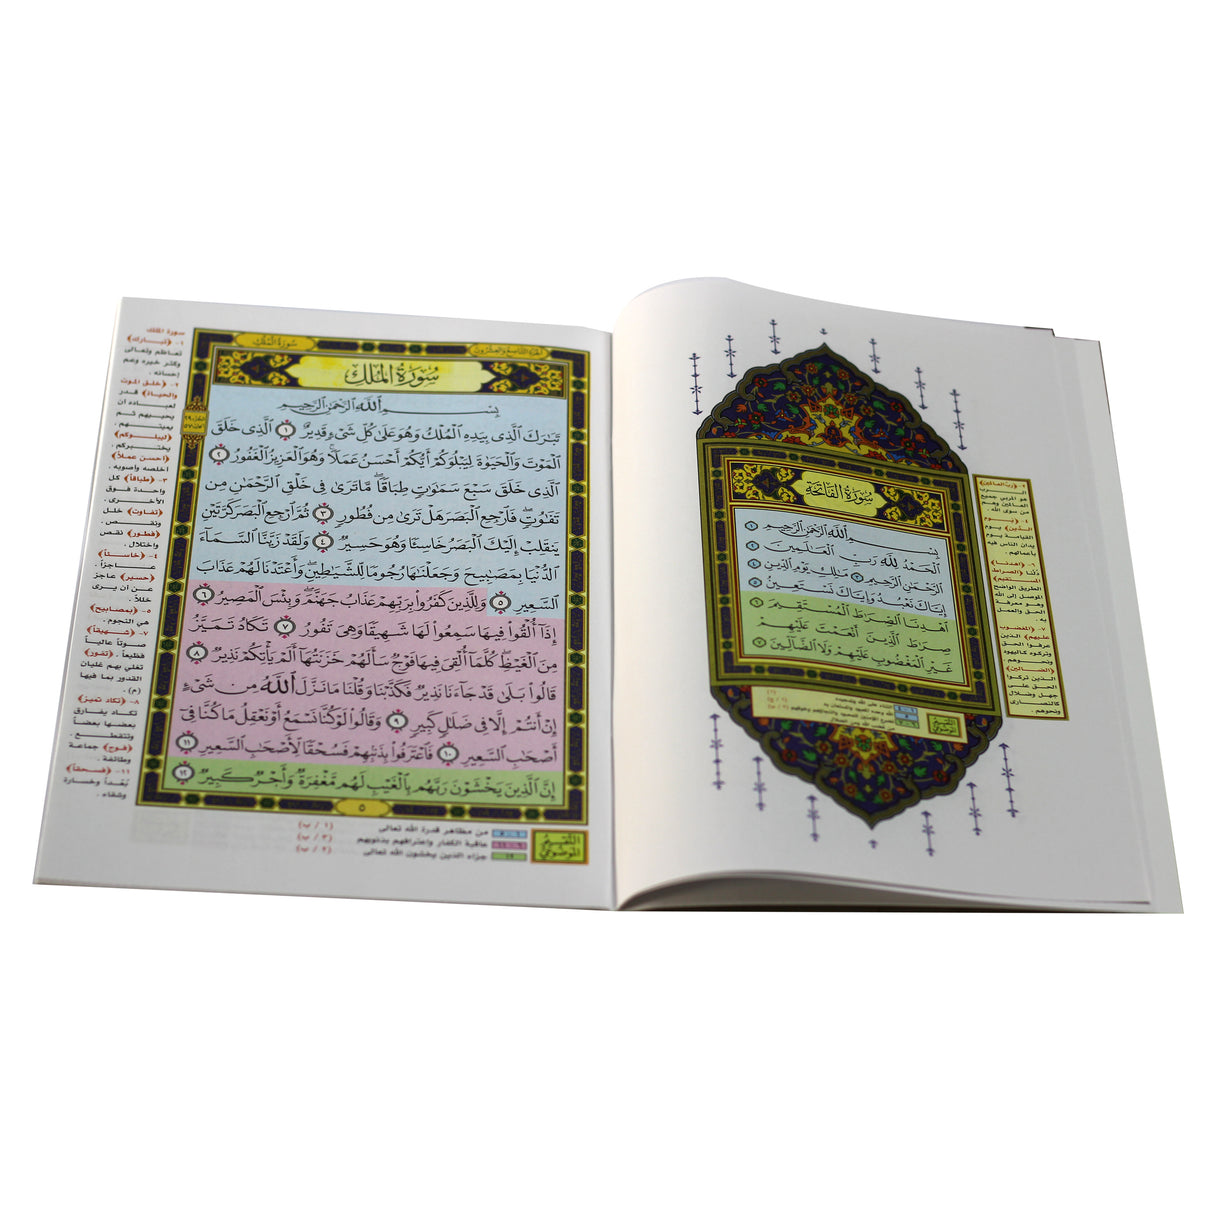 سُورَةُ الفَاتِحَة
بِسْمِ ٱللَّهِ ٱلرَّحْمَٰنِ ٱلرَّحِيمِ ١
ٱلْحَمْدُ لِلَّهِ رَبِّ ٱلْعَٰلَمِينَ ٢
ٱلرَّحْمَٰنِ ٱلرَّحِيمِ ٣ مَٰلِكِ يَوْمِ ٱلدِّينِ ٤
إِيَّاكَ نَعْبُدُ وَإِيَّاكَ نَسْتَعِينُ ٥
ٱهْدِنَا ٱلصِّرَٰطَ ٱلْمُسْتَقِيمَ ٦
صِرَٰطَ ٱلَّذِينَ أَنْعَمْتَ عَلَيْهِمْ
غَيْرِ ٱلْمَغْضُوبِ عَلَيْهِمْ وَلَا ٱلضَّآلِّينَ ٧
٢- ﴿رب العالمين﴾
هو المربي جميع
العالمين وهم
من سوى الله .
٤- ﴿يوم
الدين﴾ يوم
القيامة يوم
يدان الناس فيه
بأعمالهم .
٦- ﴿اهدنا﴾
دلنا ﴿الصراط
المستقيم﴾
الطريق الواضح
الموصل إلى الله
وهو معرفة
الحق والعمل
به .
٧- ﴿المغضوب
عليهم﴾ الذين
عرفوا الحق
وتركوه كاليهود
ونحوهم
﴿الضالين﴾
الذين تركوا
الحق على
جهل وضلال
كالنصارى
ونحوهم .
التقسيم
الموضوعي
الجزء التاسع والعشرون
سورة الملك
سُورَةُ المُلْكِ
بِسْمِ ٱللَّهِ ٱلرَّحْمَٰنِ ٱلرَّحِيمِ
تَبَٰرَكَ ٱلَّذِى بِيَدِهِ ٱلْمُلْكُ وَهُوَ عَلَىٰ كُلِّ شَىْءٍ قَدِيرٌ ١ ٱلَّذِى خَلَقَ
ٱلْمَوْتَ وَٱلْحَيَوٰةَ لِيَبْلُوَكُمْ أَيُّكُمْ أَحْسَنُ عَمَلًا وَهُوَ ٱلْعَزِيزُ ٱلْغَفُورُ ٢
ٱلَّذِى خَلَقَ سَبْعَ سَمَٰوَٰتٍ طِبَاقًا مَّا تَرَىٰ فِى خَلْقِ ٱلرَّحْمَٰنِ مِن
تَفَٰوُتٍ فَٱرْجِعِ ٱلْبَصَرَ هَلْ تَرَىٰ مِن فُطُورٍ ٣ ثُمَّ ٱرْجِعِ ٱلْبَصَرَ كَرَّتَيْنِ
يَنقَلِبْ إِلَيْكَ ٱلْبَصَرُ خَاسِئًا وَهُوَ حَسِيرٌ ٤ وَلَقَدْ زَيَّنَّا ٱلسَّمَآءَ
ٱلدُّنْيَا بِمَصَٰبِيحَ وَجَعَلْنَٰهَا رُجُومًا لِّلشَّيَٰطِينِ وَأَعْتَدْنَا لَهُمْ عَذَابَ
ٱلسَّعِيرِ ٥ وَلِلَّذِينَ كَفَرُوا۟ بِرَبِّهِمْ عَذَابُ جَهَنَّمَ وَبِئْسَ ٱلْمَصِيرُ ٦
إِذَآ أُلْقُوا۟ فِيهَا سَمِعُوا۟ لَهَا شَهِيقًا وَهِىَ تَفُورُ ٧ تَكَادُ تَمَيَّزُ
مِنَ ٱلْغَيْظِ كُلَّمَآ أُلْقِىَ فِيهَا فَوْجٌ سَأَلَهُمْ خَزَنَتُهَآ أَلَمْ يَأْتِكُمْ نَذِيرٌ ٨
قَالُوا۟ بَلَىٰ قَدْ جَآءَنَا نَذِيرٌ فَكَذَّبْنَا وَقُلْنَا مَا نَزَّلَ ٱللَّهُ مِن شَىْءٍ
إِنْ أَنتُمْ إِلَّا فِى ضَلَٰلٍ كَبِيرٍ ٩ وَقَالُوا۟ لَوْ كُنَّا نَسْمَعُ أَوْ نَعْقِلُ مَا كُنَّا فِىٓ
أَصْحَٰبِ ٱلسَّعِيرِ ١٠ فَٱعْتَرَفُوا۟ بِذَنۢبِهِمْ فَسُحْقًا لِّأَصْحَٰبِ ٱلسَّعِيرِ ١١
إِنَّ ٱلَّذِينَ يَخْشَوْنَ رَبَّهُم بِٱلْغَيْبِ لَهُم مَّغْفِرَةٌ وَأَجْرٌ كَبِيرٌ ١٢
٥
سورة الملك
١- ﴿تبارك﴾
تعاظم وتعالى
وكثر خيره وعم
إحسانه .
٢- ﴿خلق الموت
والحياة﴾ قدر
لعباده أن
يحييهم ثم
يميتهم .
﴿ليبلوكم﴾
يختبركم .
﴿أحسن عملاً﴾
أخلصه وأصوبه .
٣- ﴿طباقاً﴾ كل
واحدة فوق
الأخرى .
﴿تفاوت﴾ خلل
ونقص .
﴿فطور﴾ نقص
واختلال .
٤- ﴿خاسئاً﴾
عاجزاً .
﴿حسير﴾ عاجز
عن أن يرى
خللاً .
٥- ﴿بمصابيح﴾
هي النجوم .
٧- ﴿شهيقاً﴾
صوتاً عالياً
فظيعاً . ﴿تفور﴾
تغلي بهم غليان
القدور بما فيها
(م) .
٨- ﴿تكاد تميز﴾
تكاد يفارق
بعضها بعضاً
وتتقطع .
﴿فوج﴾ جماعة
وطائفة .
١١- ﴿فسحقاً﴾
بُعْداً وخسارة
وشقاء .
التقسيم
الموضوعي
من مظاهر قدرة الله تعالى
عاقبة الكفار واعترافهم بذنوبهم
جزاء الذين يخشون الله تعالى